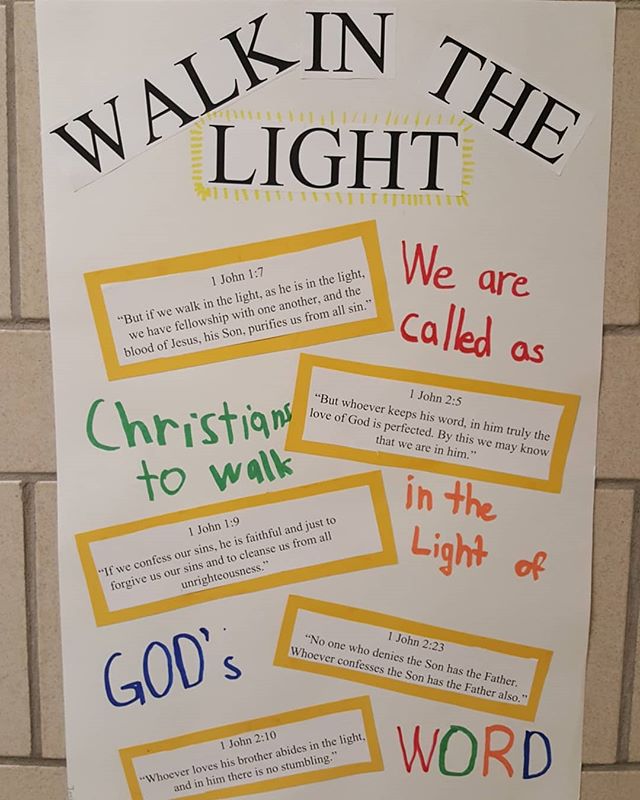 WALK IN THE
LIGHT
1 John 1:7
“But if we walk in the light, as he is in the light,
we have fellowship with one another, and the
blood of Jesus, his Son, purifies us from all sin.”
We are
called as
1 John 2:5
“But whoever keeps his word, in him truly the
love of God is perfected. By this we may know
that we are in him.”
Christians
to walk
1 John 1:9
“If we confess our sins, he is faithful and just to
forgive us our sins and to cleanse us from all
unrighteousness.”
in the
Light of
1 John 2:23
“No one who denies the Son has the Father.
Whoever confesses the Son has the Father also.”
GOD's
1 John 2:10
“Whoever loves his brother abides in the light,
and in him there is no stumbling.”
WORD